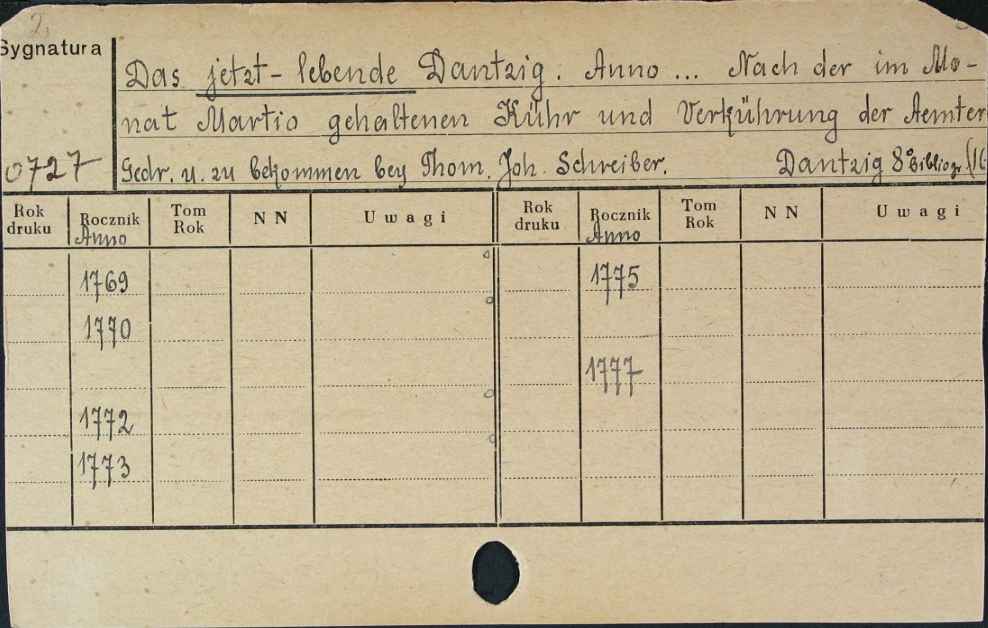 2.
Sygnatura
Das jetzt-lebende Dantzig. Anno ... Nach der im Mo-
nat Martio gehaltenen Kühr und Verkührung der Aemter
0727 Gedr. u. zu bekommen bey Thom. Joh. Schreiber. Dantzig 8° Bibliogr. (16
Rok druku Rocznik Tom Rok NN Uwagi Rok druku Rocznik Tom Rok NN Uwagi
Anno Anno
1769 1775
1770
1777
1772
1773